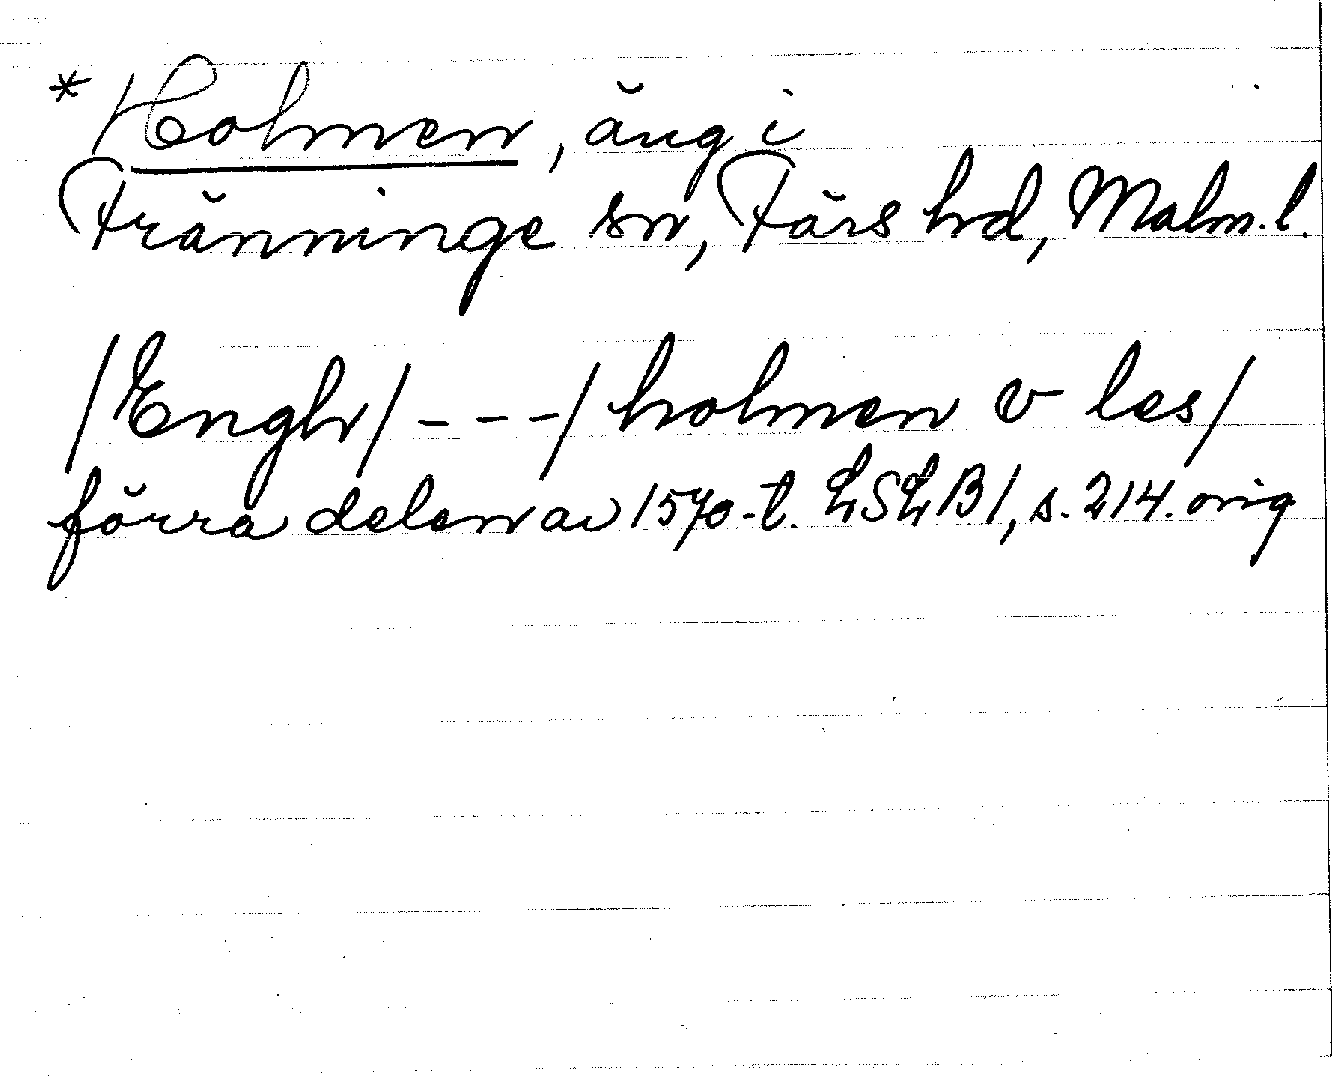 *Holmen, äng i
Tränninge sn, Färs hd, Malm. l.
/Engh/ - - -/ holmen v les/
förra delen av 1570-t. LSLB1, s. 214. orig